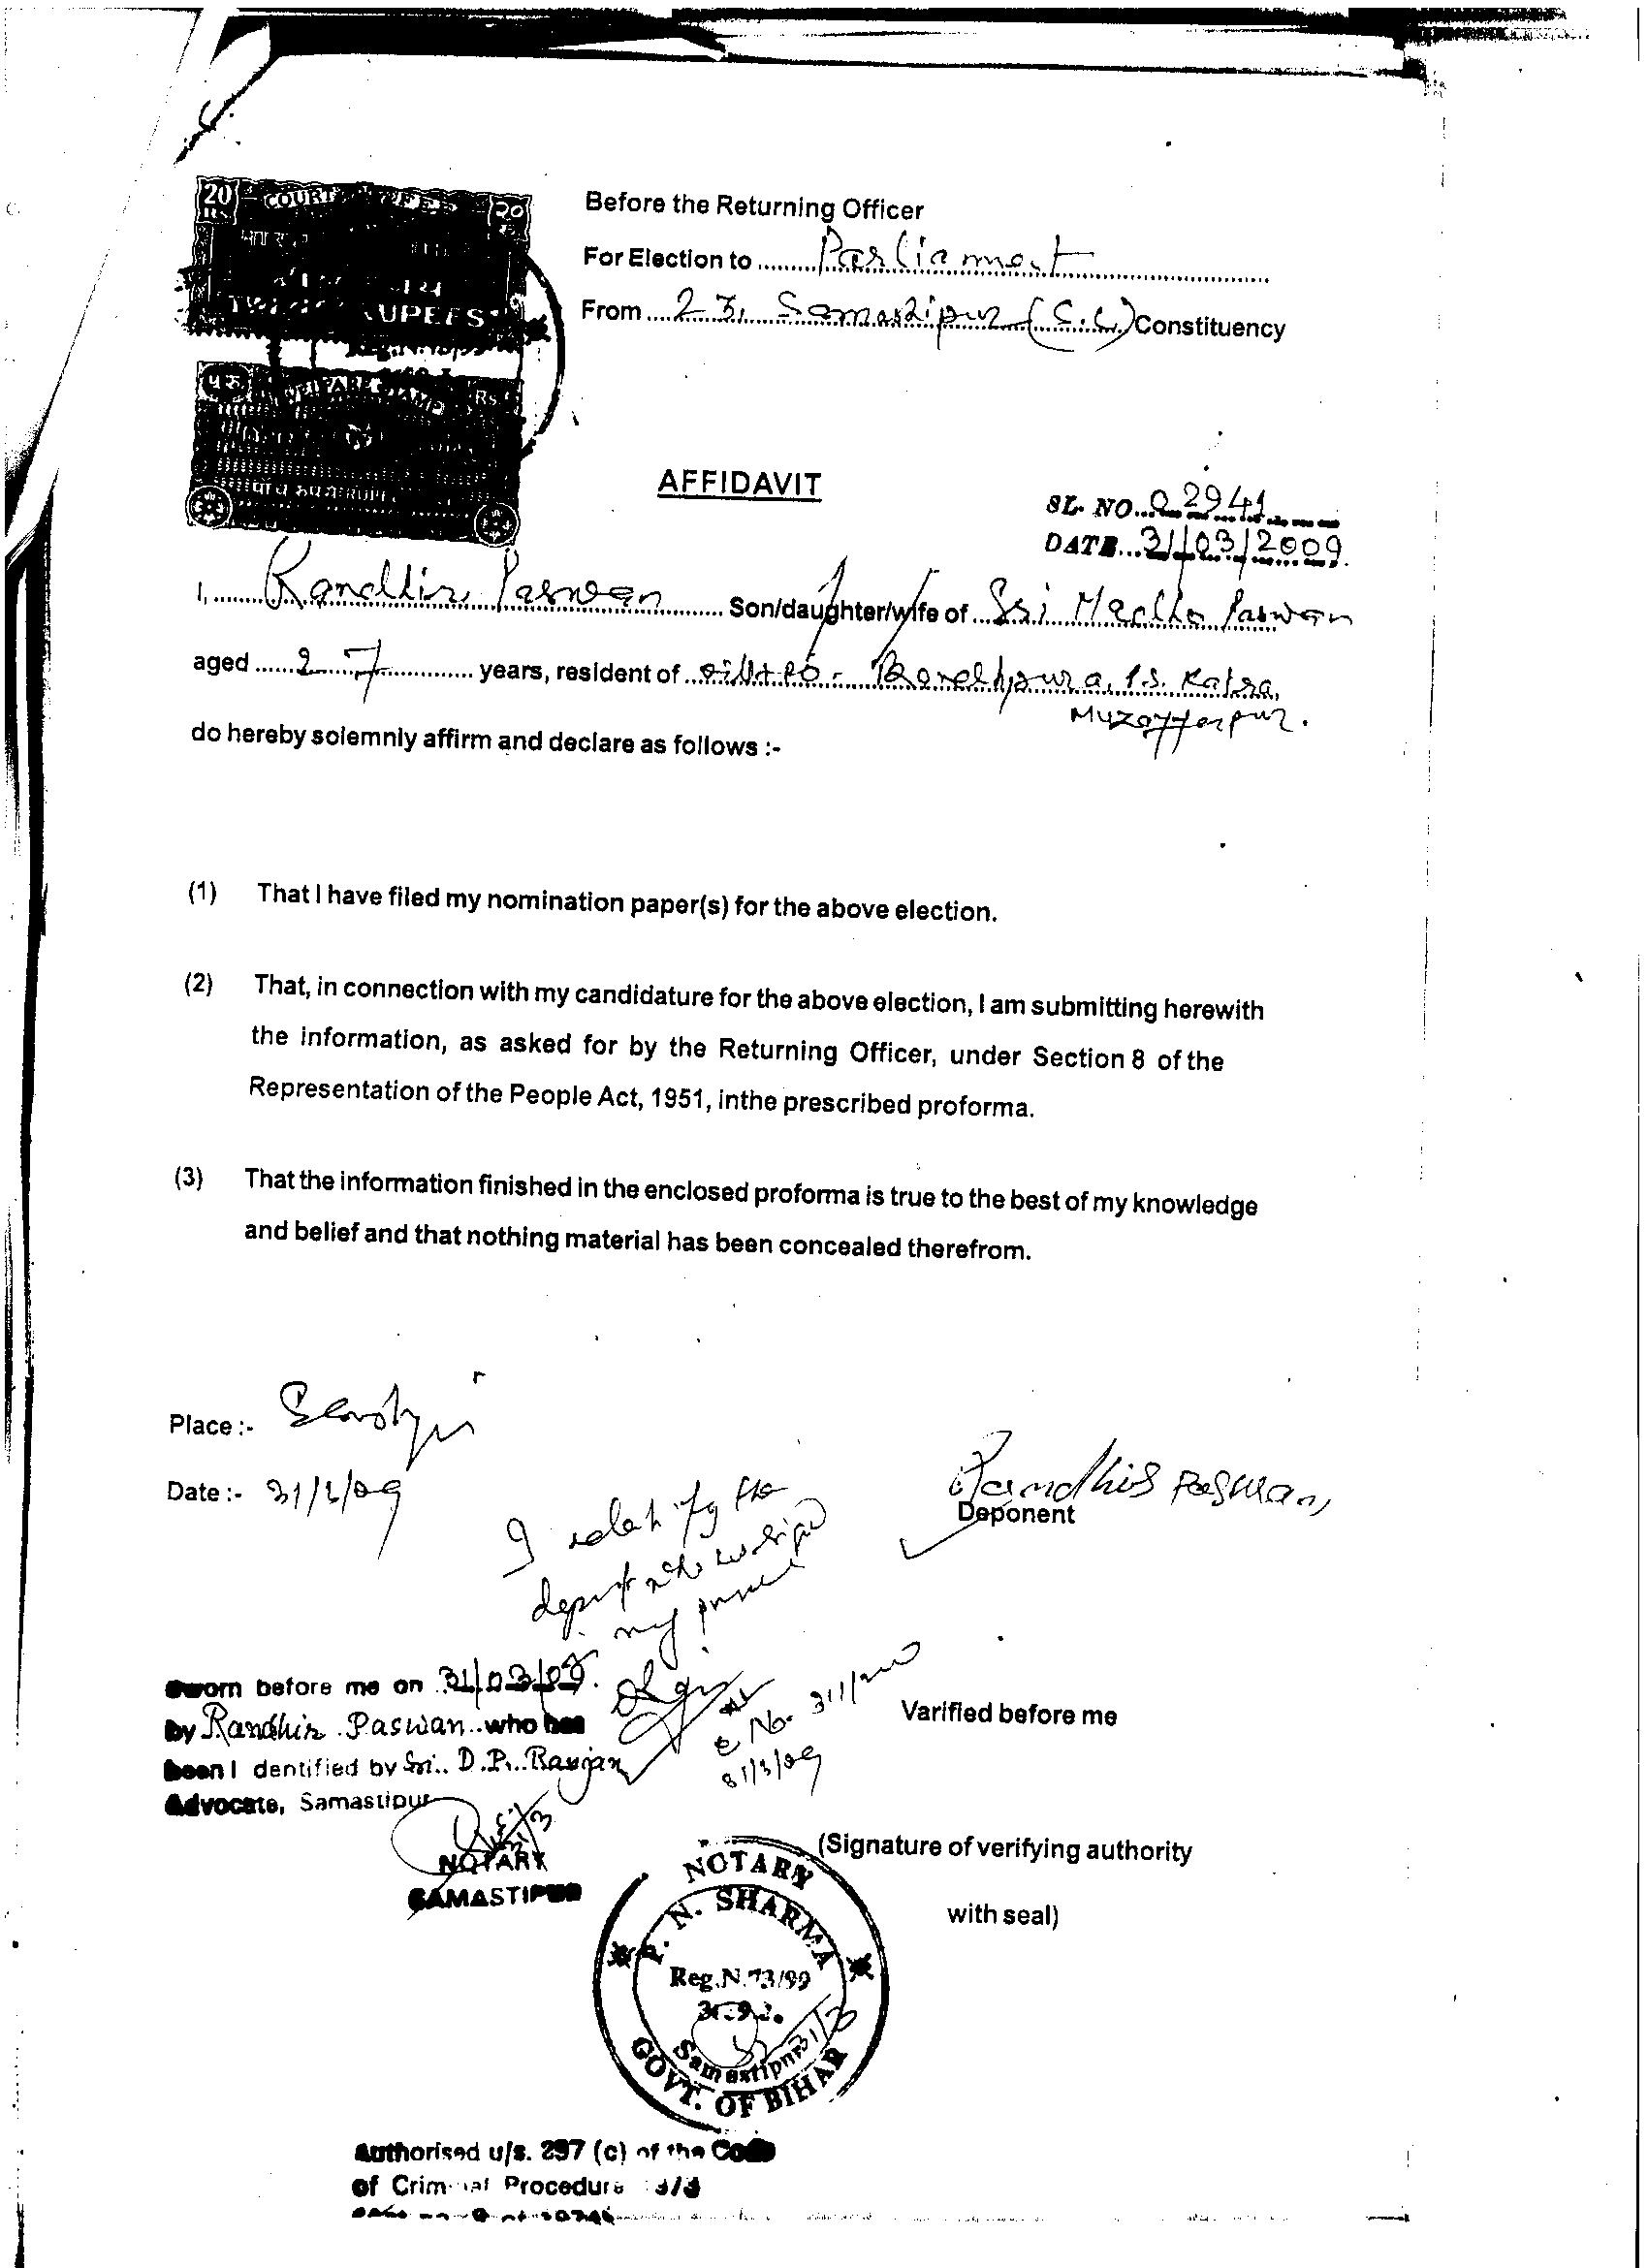 20
COURT FEE
TWENTY RUPEES
WELFARE STAMP
RS.
Before the Returning Officer
For Election to ........ Parliament ........
From .... 23, Samastipur (S.C.) Constituency
AFFIDAVIT
SL. NO. 02941
DATE... 31/03/2009.
I, ........ Randhir Paswan ........ Son/daughter/wife of ... Sri Madho Paswan
aged ...... 27 ............ years, resident of .. vill+PO - Bandhpura, P.S. Katra,
Muzaffarpur.
do hereby solemnly affirm and declare as follows :-
(1) That I have filed my nomination paper(s) for the above election.
(2) That, in connection with my candidature for the above election, I am submitting herewith
the information, as asked for by the Returning Officer, under Section 8 of the
Representation of the People Act, 1951, inthe prescribed proforma.
(3) That the information finished in the enclosed proforma is true to the best of my knowledge
and belief and that nothing material has been concealed therefrom.
Place :-
Date :- 31/3/09
Randhir Paswan,
Deponent
my
Sworn before me on 31/03/09.
by Randhir Paswan who has
been I dentified by Sri. D.P. Ranjan
Advocate, Samastipur
31/3/09
Varified before me
NOTARY
SAMASTIPUR
(Signature of verifying authority
with seal)
NOTARY
N. SHARMA
Reg.N.73/99
31/3
Samastipur
GOVT. OF BIHAR
Authorised u/s. 297 (c) of the Code
of Criminal Procedure